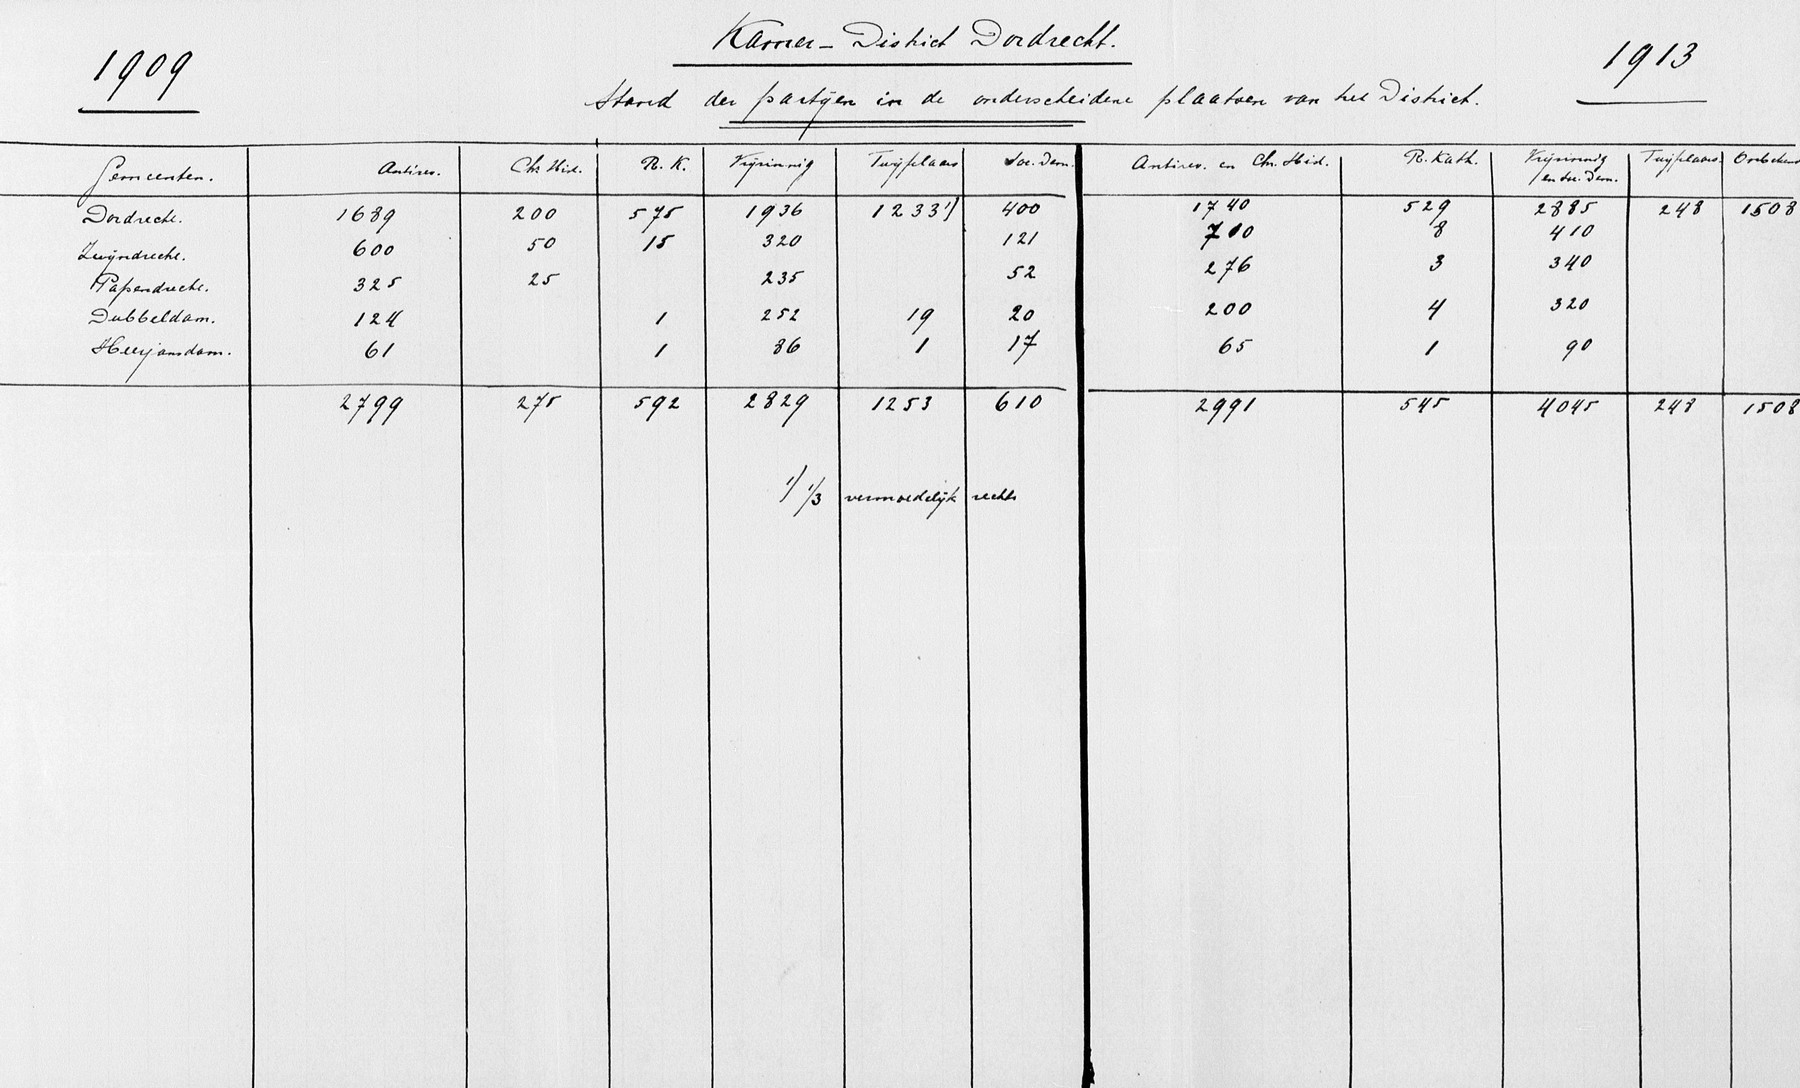 Kamer-District Dordrecht.
1909
1913
Stand der partijen in de onderscheidene plaatsen van het District.
Gemeenten. Antirev. Chr. Hist. R. K. Vrijzinnig Twijfelaars Soc. Dem. Antirev. en Chr. Hist. R. Kath. Vrijzinnig en soc. Dem. Twijfelaars Onbekend
Dordrecht. 1689 200 575 1936 1233 1) 400 1740 529 2885 248 1508
Zwijndrecht. 600 50 15 320 121 710 8 410
Papendrecht. 325 25 235 52 276 3 340
Dubbeldam. 124 1 252 19 20 200 4 320
Heerjansdam. 61 1 86 1 17 65 1 90
2799 275 592 2829 1253 610 2991 545 4045 248 1508
1) 1/3 vermoedelijk rechts